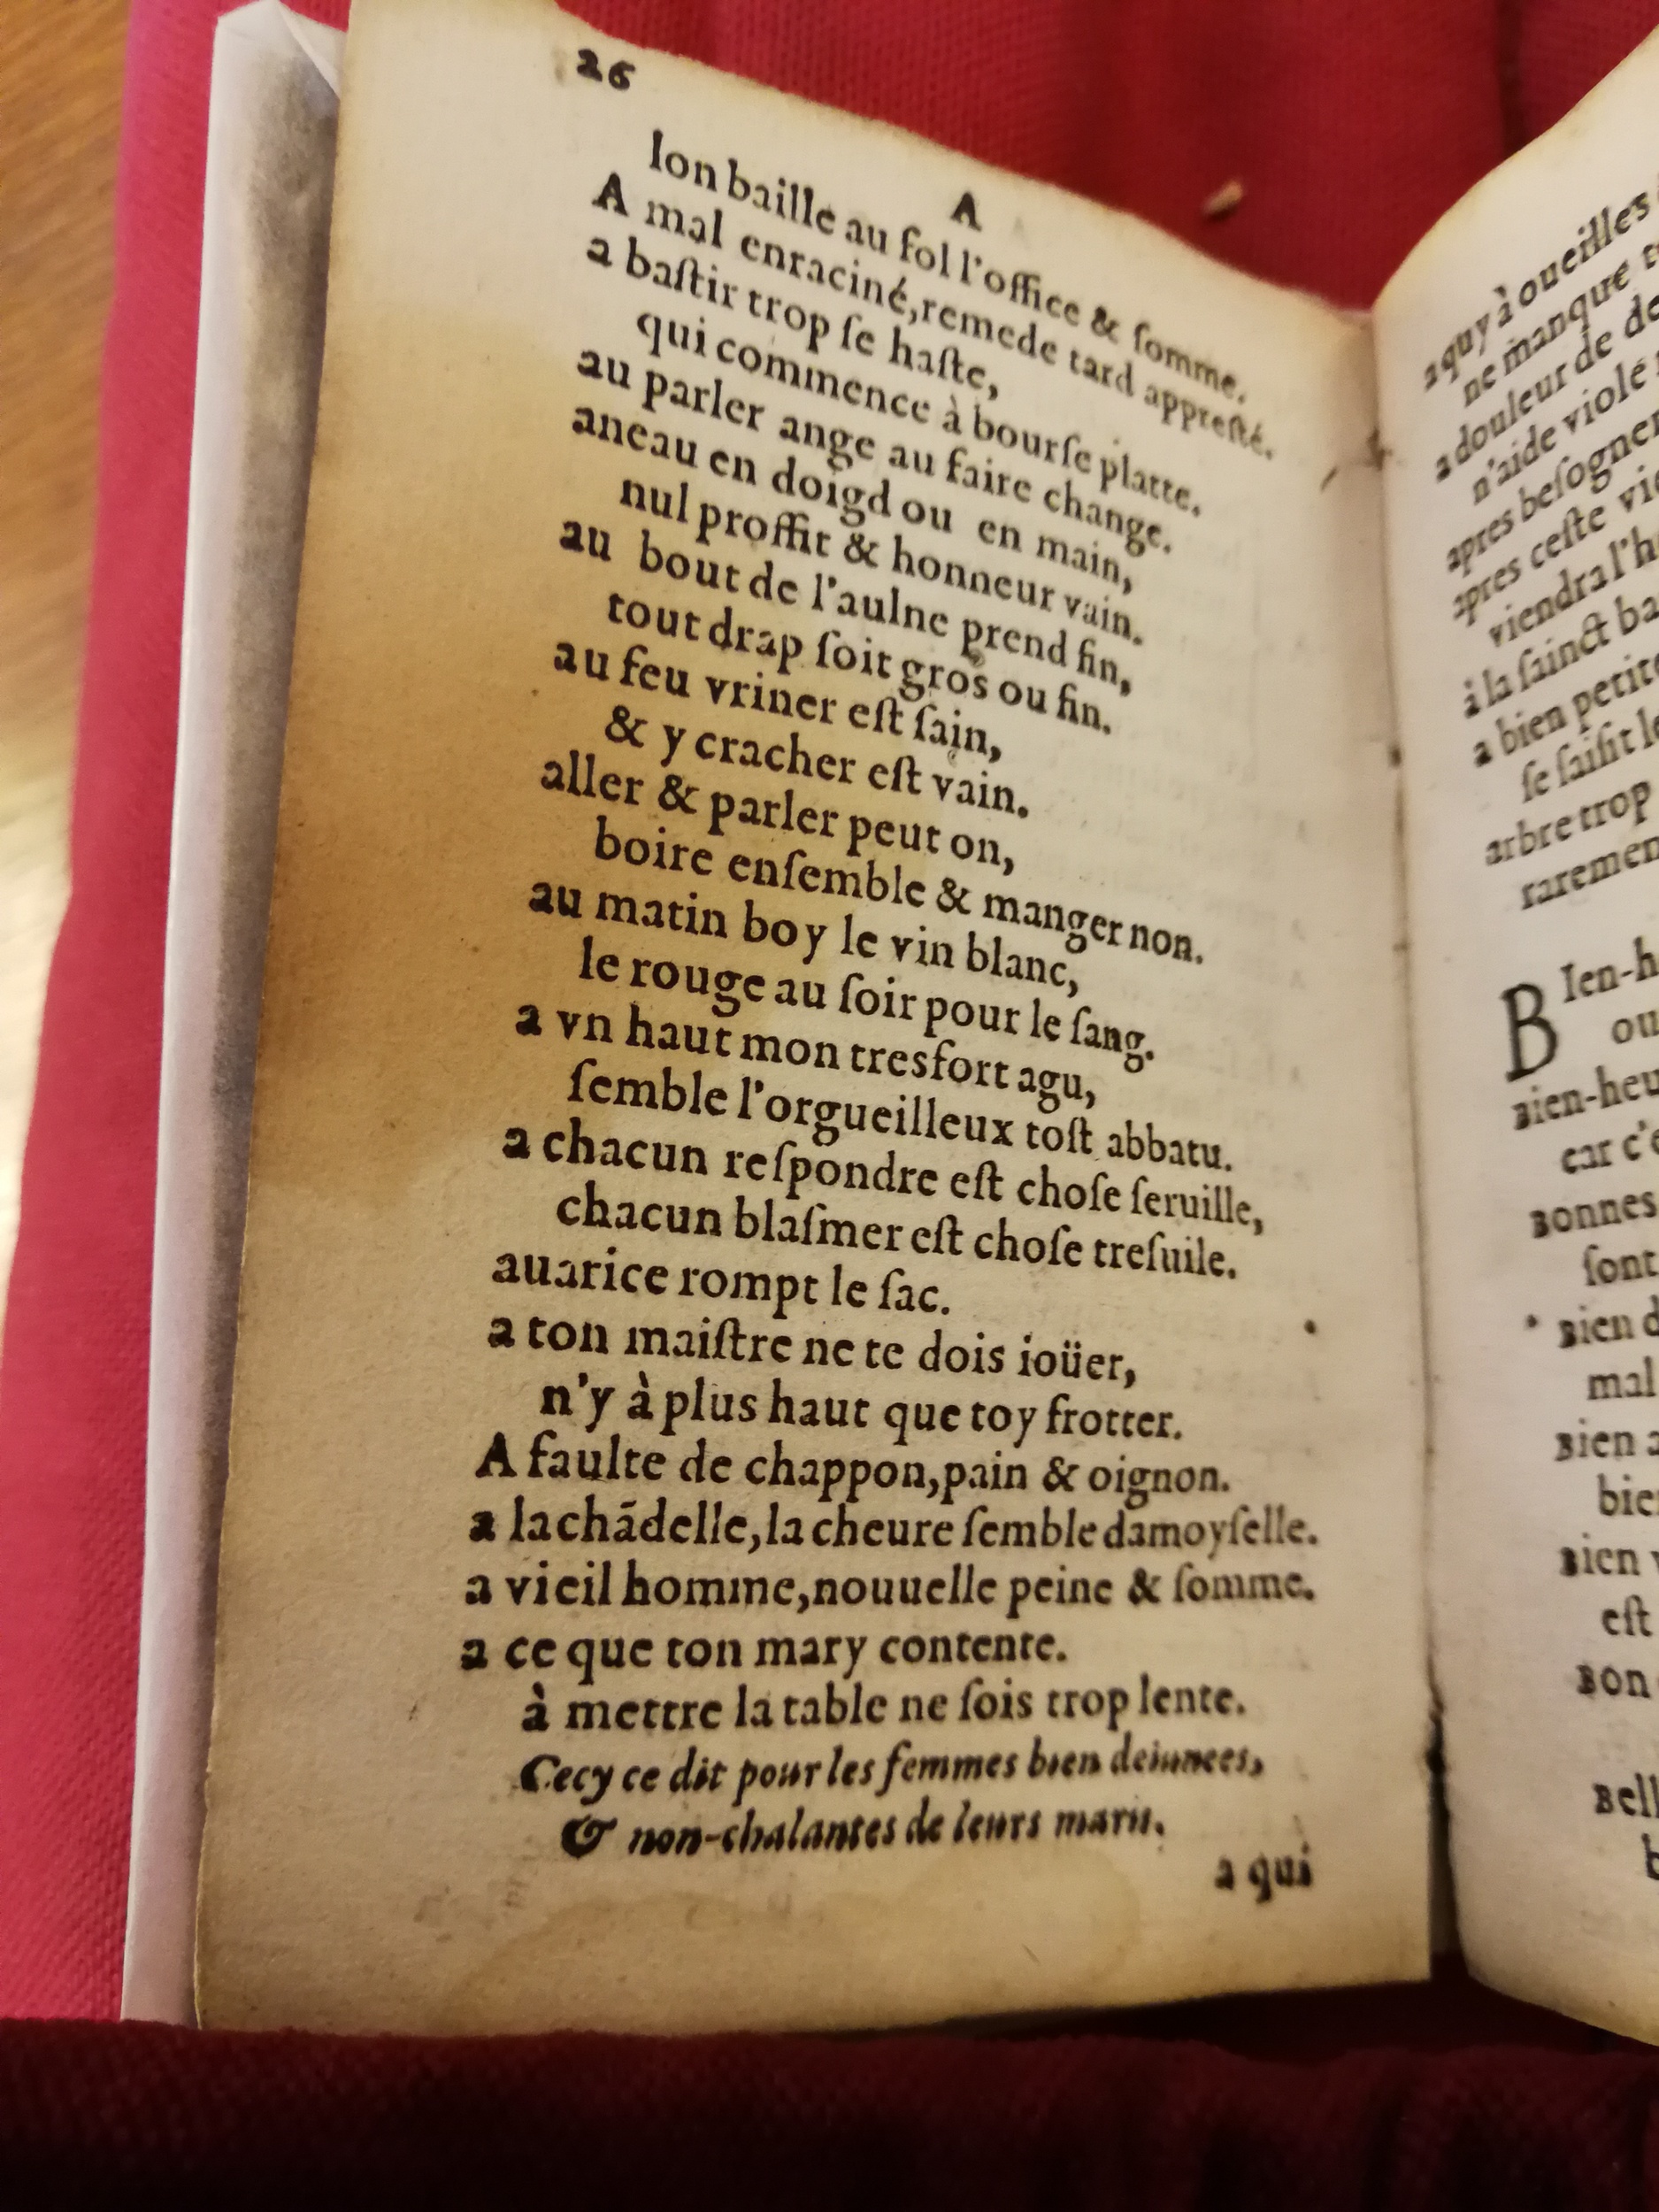 26
A
lon baille au fol l'office & ſomme.
A mal enraciné, remede tard appreſté.
a baſtir trop ſe haſte,
qui commence à bourſe platte.
au parler ange au faire change.
aneau en doigd ou en main,
nul proffit & honneur vain.
au bout de l'aulne prend fin,
tout drap ſoit gros ou fin.
au feu vriner eſt ſain,
& y cracher eſt vain.
aller & parler peut on,
boire enſemble & manger non.
au matin boy le vin blanc,
le rouge au ſoir pour le ſang.
a vn haut mon tresfort agu,
ſemble l'orgueilleux toſt abbatu.
a chacun reſpondre eſt choſe ſeruille,
chacun blaſmer eſt choſe treſuile.
auarice rompt le ſac.
a ton maiſtre ne te dois ioüer,
n'y à plus haut que toy frotter.
A faulte de chappon, pain & oignon.
a la chãdelle, la cheure ſemble damoyſelle.
a vieil homme, nouuelle peine & ſomme.
a ce que ton mary contente.
à mettre la table ne ſois trop lente.
Cecy ce dit pour les femmes bien deiunees,
& non-chalantes de leurs maris.
a qui
a quy à oueilles
ne manque
a douleur de
n'aide viole
apres beſogner
apres ceſte
viendra
à la ſainct
a bien petite
ſe ſaiſit
arbre trop
BIen-
Bien-heu
car c'e
Bonnes
ſont
Bien
mal
Bien
Bien
eſt
Bon